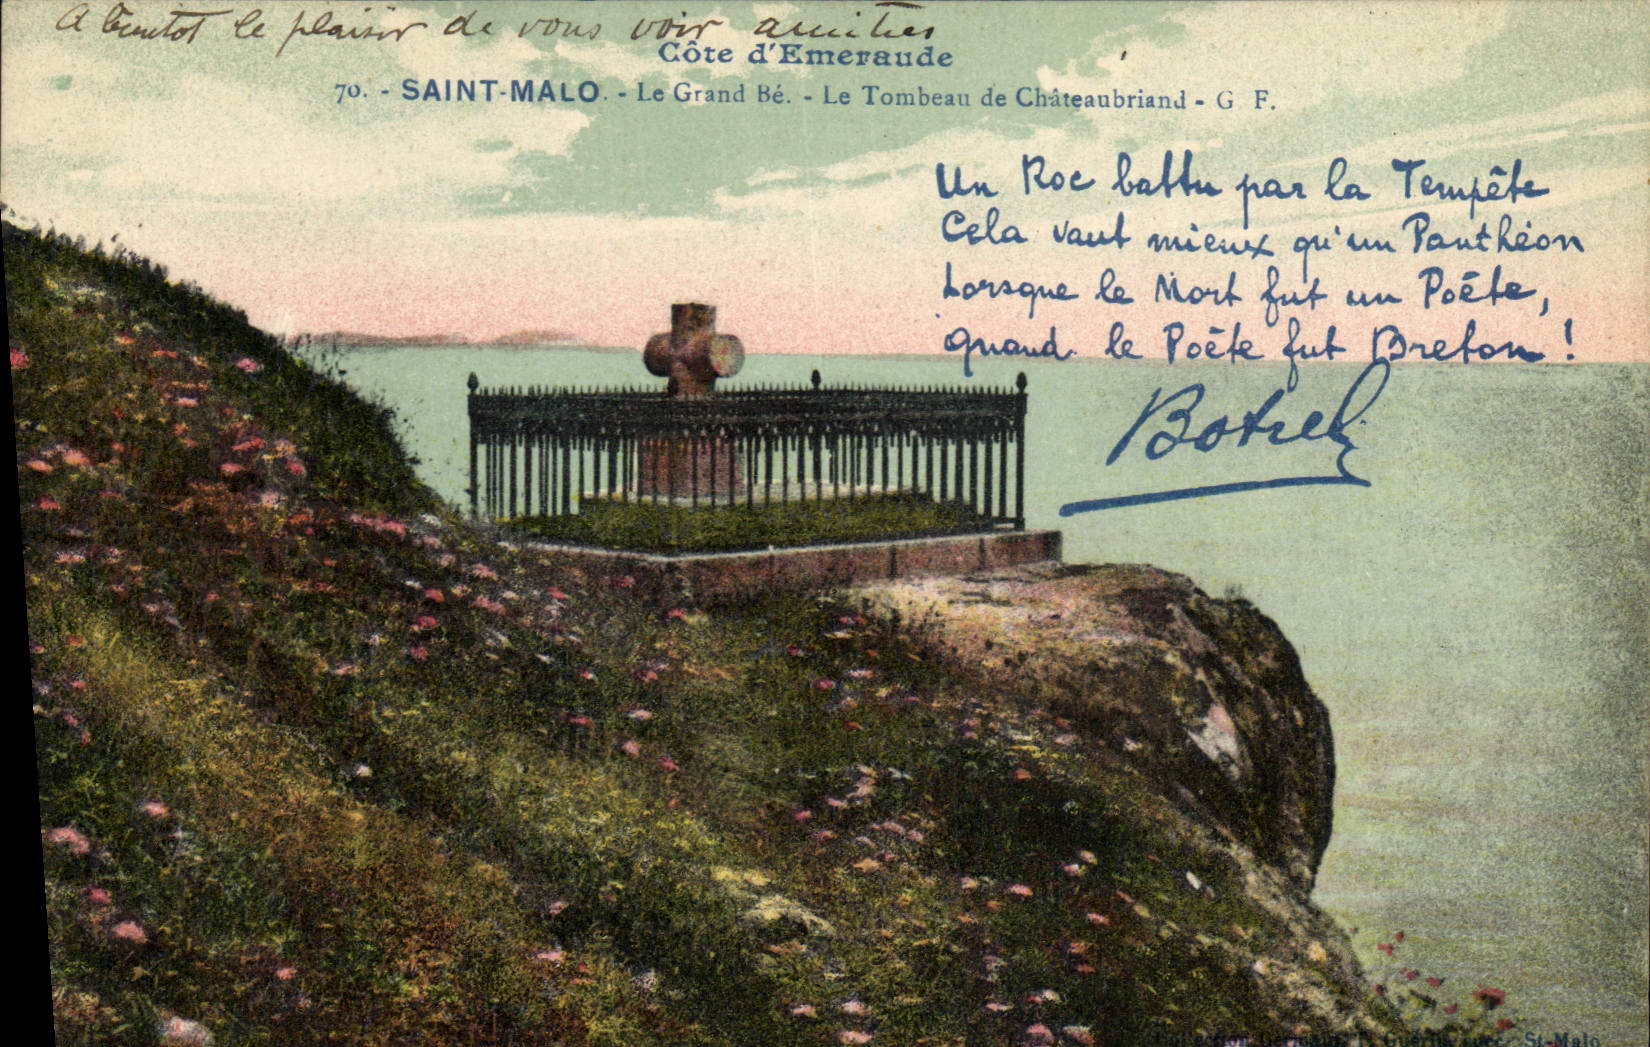 A bientot le plaisir de vous voir amities
Côte d'Emeraude
70. - SAINT-MALO. - Le Grand Bé. - Le Tombeau de Châteaubriand - G F.
Un Roc battu par la Tempête
Cela vaut mieux qu'un Panthéon
Lorsque le Mort fut un Poëte,
quand le Poëte fut Breton !
Botrel
Collection Germain, F. Guérin succ. St-Malo